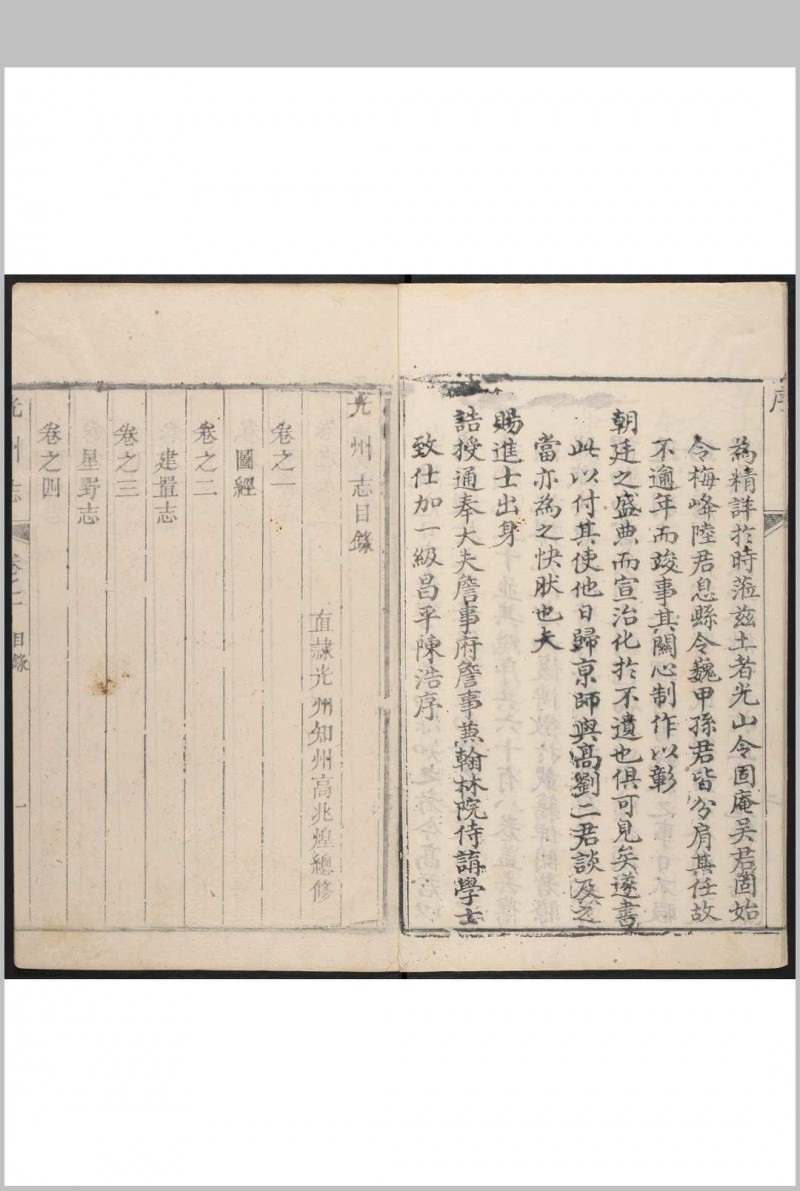 序
為精詳於時蒞茲土者光山令固庵吴君固始
令梅峰陸君息縣令巍甲孫君皆分肩其任故
不逾年而竣事其關心制作以彰
朝廷之盛典而宣治化於不遺也俱可見矣遂書
此以付其使他日歸京師與高劉二君談及之
當亦為之快肰也夫
賜進士出身
誥授通奉大夫詹事府詹事兼翰林院侍講學士
致仕加一級昌平陳浩序
光州志目錄
直隷光州知州高兆煌總修
卷之一
圖經
卷之二
建置志
卷之三
星野志
卷之四
光州志
目錄
一